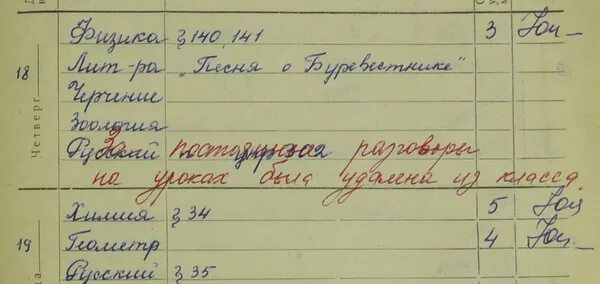 Физика § 140, 141 3
18 Лит-ра „Песня о Буревестнике"
Черчение
Четверг
Зоология
Русский
За постоянные разговоры
на уроках была удалена из класса.
Химия § 34 5
19 Геометр 4
Русский § 35